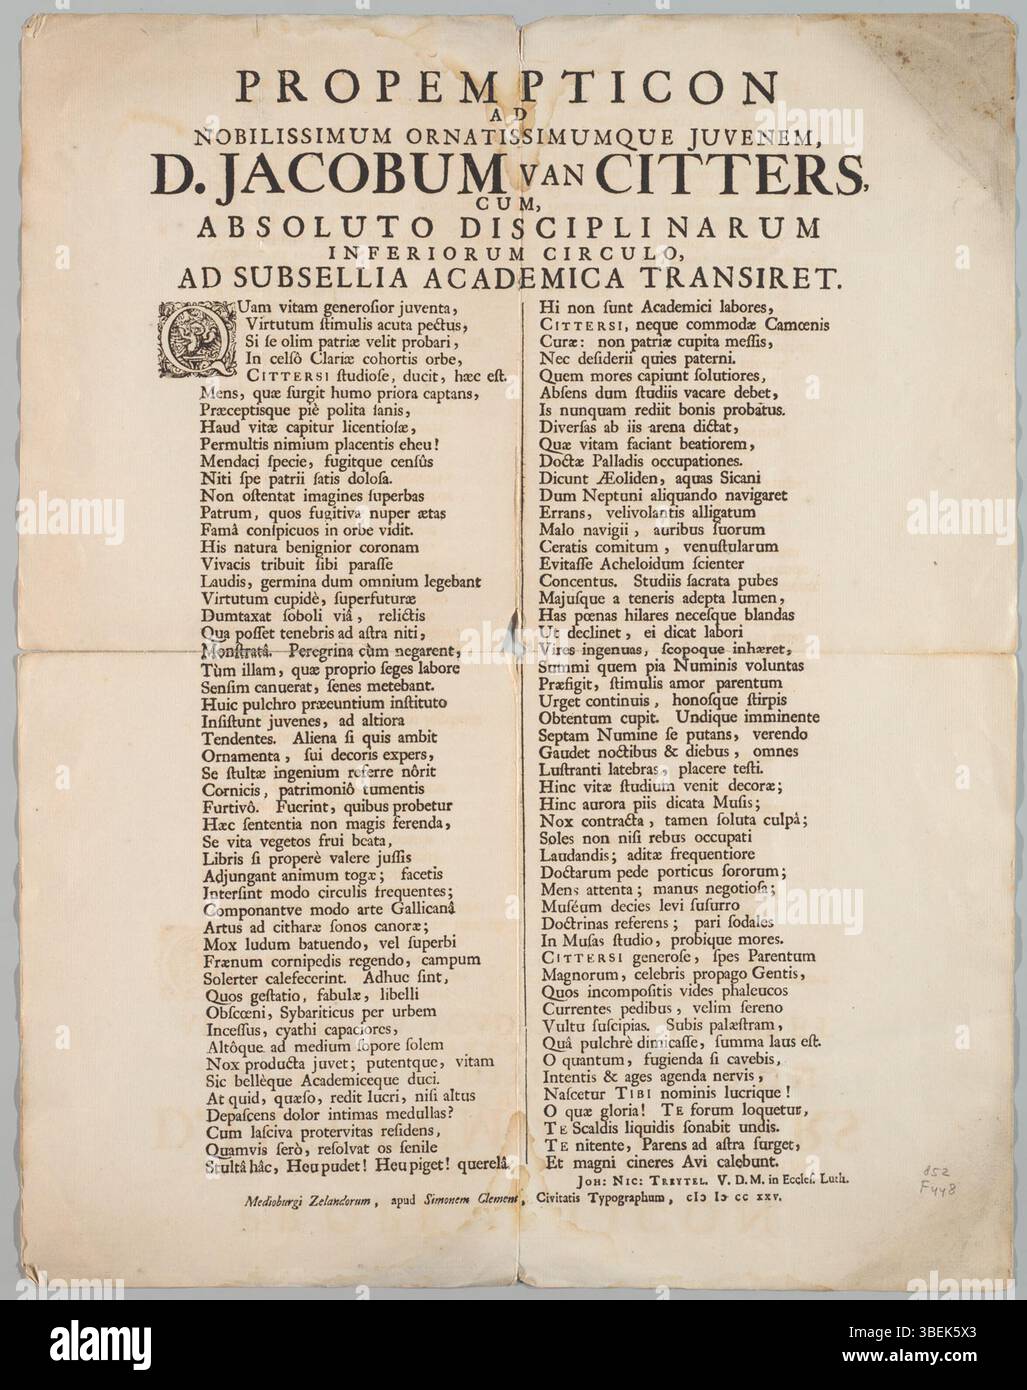 PROPEMPTICON
AD
NOBILISSIMUM ORNATISSIMUMQUE JUVENEM,
D. JACOBUM VAN CITTERS,
CUM,
ABSOLUTO DISCIPLINARUM
INFERIORUM CIRCULO,
AD SUBSELLIA ACADEMICA TRANSIRET.
QUam vitam generoſior juventa,
Virtutum ſtimulis acuta pectus,
Si ſe olim patriæ velit probari,
In celſô Clariæ cohortis orbe,
CITTERSI ſtudioſe, ducit, hæc eſt.
Mens, quæ ſurgit humo priora captans,
Præceptisque piè polita ſanis,
Haud vitæ capitur licentioſæ,
Permultis nimium placentis eheu!
Mendaci ſpecie, fugitque cenſûs
Niti ſpe patrii ſatis doloſa.
Non oſtentat imagines ſuperbas
Patrum, quos fugitiva nuper ætas
Famâ conſpicuos in orbe vidit.
His natura benignior coronam
Vivacis tribuit ſibi paraſſe
Laudis, germina dum omnium legebant
Virtutum cupidè, ſuperfuturæ
Dumtaxat ſoboli viâ, relictis
Qua poſſet tenebris ad aſtra niti,
Monſtratâ. Peregrina cùm negarent,
Tùm illam, quæ proprio ſeges labore
Senſim canuerat, ſenes metebant.
Huic pulchro præeuntium inſtituto
Inſiſtunt juvenes, ad altiora
Tendentes. Aliena ſi quis ambit
Ornamenta, ſui decoris expers,
Se ſtultæ ingenium referre nôrit
Cornicis, patrimoniô tumentis
Furtivô. Fuerint, quibus probetur
Hæc ſententia non magis ferenda,
Se vita vegetos frui beata,
Libris ſi properè valere juſſis
Adjungant animum togæ; facetis
Interſint modo circulis frequentes;
Componantve modo arte Gallicanâ
Artus ad citharæ ſonos canoræ;
Mox ludum batuendo, vel ſuperbi
Frænum cornipedis regendo, campum
Solerter calefecerint. Adhuc ſint,
Quos geſtatio, fabulæ, libelli
Obſcœni, Sybariticus per urbem
Inceſſus, cyathi capaciores,
Altôque ad medium ſopore ſolem
Nox producta juvet; putentque, vitam
Sic bellèque Academiceque duci.
At quid, quæſo, redit lucri, niſi altus
Depaſcens dolor intimas medullas?
Cum laſciva protervitas reſidens,
Quamvis ſerò, reſolvat os ſenile
Stultâ hâc, Heu pudet! Heu piget! querelâ.
Hi non ſunt Academici labores,
CITTERSI, neque commodæ Camœnis
Curæ: non patriæ cupita meſſis,
Nec deſiderii quies paterni.
Quem mores capiunt ſolutiores,
Abſens dum ſtudiis vacare debet,
Is nunquam rediit bonis probatus.
Diverſas ab iis arena dictat,
Quæ vitam faciant beatiorem,
Doctæ Palladis occupationes.
Dicunt Æoliden, aquas Sicani
Dum Neptuni aliquando navigaret
Errans, velivolantis alligatum
Malo navigii, auribus ſuorum
Ceratis comitum, venuſtularum
Evitaſſe Acheloidum ſcienter
Concentus. Studiis ſacrata pubes
Majuſque a teneris adepta lumen,
Has pœnas hilares necesſque blandas
Ut declinet, ei dicat labori
Vires ingenuas, ſcopoque inhæret,
Summi quem pia Numinis voluntas
Præfigit, ſtimulis amor parentum
Urget continuis, honoſque ſtirpis
Obtentum cupit. Undique imminente
Septam Numine ſe putans, verendo
Gaudet noctibus & diebus, omnes
Luſtranti latebras, placere teſti.
Hinc vitæ ſtudium venit decoræ;
Hinc aurora piis dicata Muſis;
Nox contracta, tamen ſoluta culpâ;
Soles non niſi rebus occupati
Laudandis; aditæ frequentiore
Doctarum pede porticus ſororum;
Mens attenta; manus negotioſa;
Muſéum decies levi ſuſurro
Doctrinas referens; pari ſodales
In Muſas ſtudio, probique mores.
CITTERSI generoſe, ſpes Parentum
Magnorum, celebris propago Gentis,
Quos incompoſitis vides phaleucos
Currentes pedibus, velim ſereno
Vultu ſuſcipias. Subis palæſtram,
Quâ pulchrè dimicaſſe, ſumma laus eſt.
O quantum, fugienda ſi cavebis,
Intentis & ages agenda nervis,
Naſcetur TIBI nominis lucrique!
O quæ gloria! TE forum loquetur,
TE Scaldis liquidis ſonabit undis.
TE nitente, Parens ad aſtra ſurget,
Et magni cineres Avi calebunt.
JOH: NIC: TREYTEL. V. D. M. in Eccleſ. Luth.
Medioburgi Zelandorum, apud Simonem Clement, Civitatis Typographum, cIↃ IↃ cc xxv.
852
F 448
alamy
Image ID: 3BEK5X3
www.alamy.com